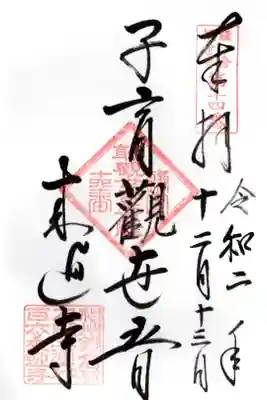 奉拝
令和二年
十二月十三日
子育觀世音
来迎寺